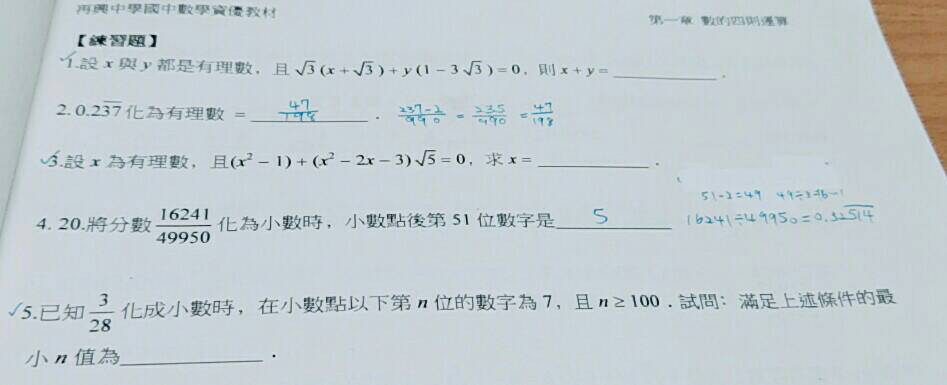 再興中學國中數學資優教材
第一章 數的四則運算
【練習題】
✓1.設 x 與 y 都是有理數，且 √3(x+√3)+y(1−3√3)=0，則 x+y=________．
2. 0.2\overline{37} 化為有理數 = 47/198 ． 237-2/990 = 235/990 = 47/198
✓3.設 x 為有理數，且(x²−1)+(x²−2x−3)√5=0，求 x=________．
51-2=49 49÷3=16…1
4. 20.將分數 16241/49950 化為小數時，小數點後第 51 位數字是 5 16241÷49950=0.32\overline{514}
✓5.已知 3/28 化成小數時，在小數點以下第 n 位的數字為 7，且 n≥100．試問：滿足上述條件的最
小 n 值為________．